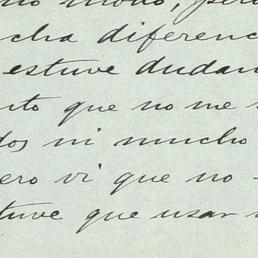 mo modo, per
cha diferenc
estuve dudan
nto que no me
dos ni mucho
ero vi que no
tuve que usar